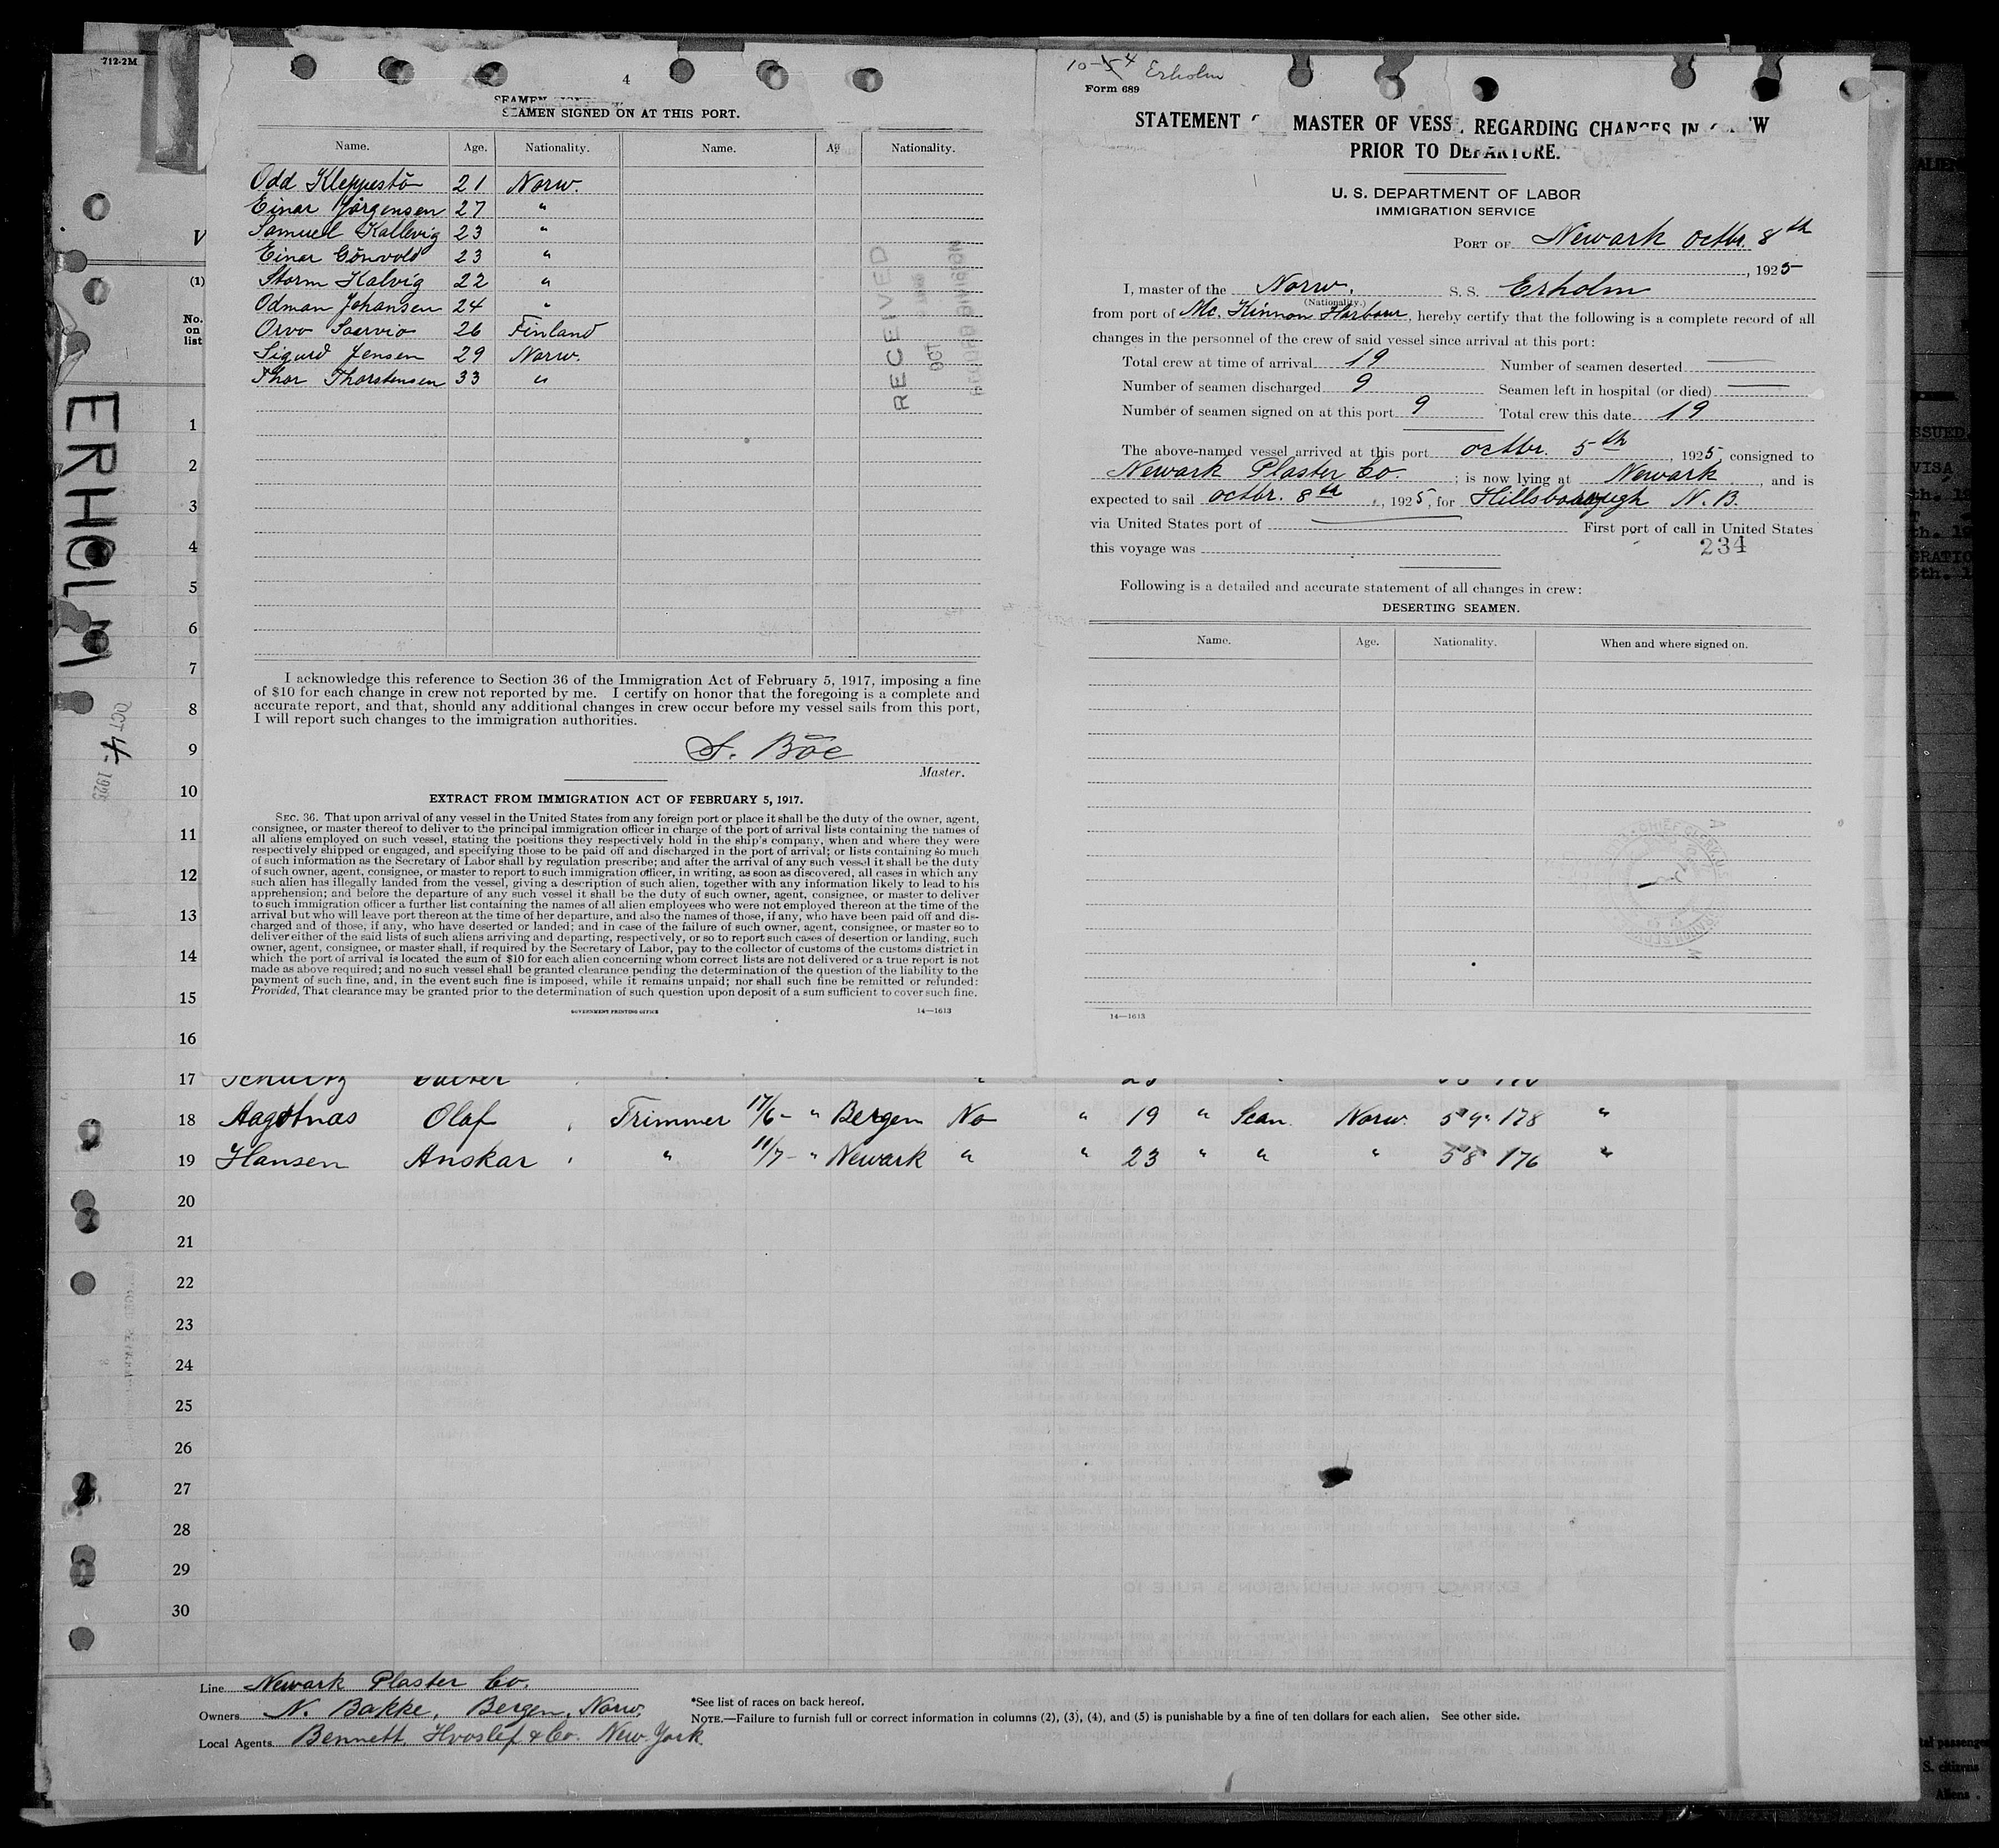 712-2M
4
SEAMEN SIGNED ON AT THIS PORT.
Name. Age. Nationality. Name. Nationality.
Odd Kleppestö 21 Norw.
Einar Jörgensen 27 "
Samuel Kallevig 23 "
Einar Gönvold 23 "
Storm Halvig 22 "
Odman Johansen 24 "
Orvo Saarvio 26 Finland
Sigurd Jensen 29 Norw.
Thor Thorstensen 33 "
RECEIVED
OCT
I acknowledge this reference to Section 36 of the Immigration Act of February 5, 1917, imposing a fine
of $10 for each change in crew not reported by me. I certify on honor that the foregoing is a complete and
accurate report, and that, should any additional changes in crew occur before my vessel sails from this port,
I will report such changes to the immigration authorities.
S. Böe
Master.
EXTRACT FROM IMMIGRATION ACT OF FEBRUARY 5, 1917.
SEC. 36. That upon arrival of any vessel in the United States from any foreign port or place it shall be the duty of the owner, agent,
consignee, or master thereof to deliver to the principal immigration officer in charge of the port of arrival lists containing the names of
all aliens employed on such vessel, stating the positions they respectively hold in the ship's company, when and where they were
respectively shipped or engaged, and specifying those to be paid off and discharged in the port of arrival; or lists containing so much
of such information as the Secretary of Labor shall by regulation prescribe; and after the arrival of any such vessel it shall be the duty
of such owner, agent, consignee, or master to report to such immigration officer, in writing, as soon as discovered, all cases in which any
such alien has illegally landed from the vessel, giving a description of such alien, together with any information likely to lead to his
apprehension; and before the departure of any such vessel it shall be the duty of such owner, agent, consignee, or master to deliver
to such immigration officer a further list containing the names of all alien employees who were not employed thereon at the time of the
arrival but who will leave port thereon at the time of her departure, and also the names of those, if any, who have been paid off and dis-
charged and of those, if any, who have deserted or landed; and in case of the failure of such owner, agent, consignee, or master so to
deliver either of the said lists of such aliens arriving and departing, respectively, or so to report such cases of desertion or landing, such
owner, agent, consignee, or master shall, if required by the Secretary of Labor, pay to the collector of customs of the customs district in
which the port of arrival is located the sum of $10 for each alien concerning whom correct lists are not delivered or a true report is not
made as above required; and no such vessel shall be granted clearance pending the determination of the question of the liability to the
payment of such fine, and, in the event such fine is imposed, while it remains unpaid; nor shall such fine be remitted or refunded:
Provided, That clearance may be granted prior to the determination of such question upon deposit of a sum sufficient to cover such fine.
GOVERNMENT PRINTING OFFICE 14—1613
10-4 Erholm
Form 689
STATEMENT MASTER OF REGARDING CHANGES IN
PRIOR TO DEPARTURE.
U. S. DEPARTMENT OF LABOR
IMMIGRATION SERVICE
PORT OF Newark octbr. 8th
, 1925
I, master of the Norw. S. S. Erholm
(Nationality.)
from port of Mc. Kinnon Harbour, hereby certify that the following is a complete record of all
changes in the personnel of the crew of said vessel since arrival at this port:
Total crew at time of arrival 19 Number of seamen deserted
Number of seamen discharged 9 Seamen left in hospital (or died)
Number of seamen signed on at this port 9 Total crew this date 19
The above-named vessel arrived at this port octbr. 5th, 1925, consigned to
Newark Plaster Co. ; is now lying at Newark, and is
expected to sail octbr. 8th, 1925, for Hillsborough N. B.
via United States port of First port of call in United States
this voyage was 234
Following is a detailed and accurate statement of all changes in crew:
DESERTING SEAMEN.
Name. Age. Nationality. When and where signed on.
14—1613
ERHOLM
OCT 4 - 1925
(1)
No.
on
list
1
2
3
4
5
6
7
8
9
10
11
12
13
14
15
16
17
18 Aagotnas Olaf Trimmer 17/6 - " Bergen No " 19 " Scan. Norw. 5'9" 178 "
19 Hansen Anskar " 11/7 - " Newark " " 23 " " " 5'8" 176 "
20
21
22
23
24
25
26
27
28
29
30
Line Newark Plaster Co.
Owners N. Bakke, Bergen, Norw.
Local Agents Bennett, Hvoslef & Co. New York
*See list of races on back hereof.
NOTE.—Failure to furnish full or correct information in columns (2), (3), (4), and (5) is punishable by a fine of ten dollars for each alien. See other side.